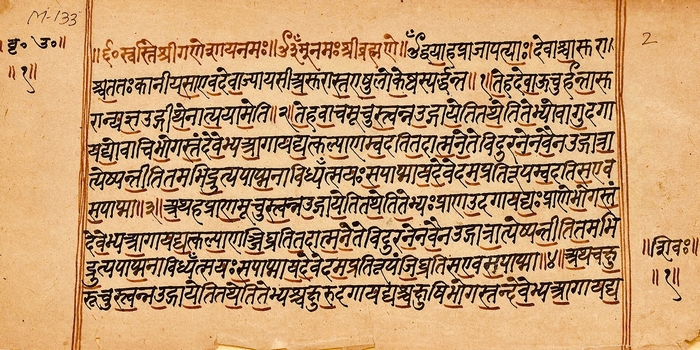 M-133
2
बृ॰ उ॰॥
॥१॥
॥ स्वस्तिश्रीगणेशायनमः॥ॐनमःश्रीब्रह्मणे॥ॐद्वयाहप्राजापत्याः॥देवाश्चासुरा।
श्चततःकानीयसाएवदेवाज्यायसाअसुरास्तएषुलोकेष्वस्पर्द्धन्त॥१॥तेहदेवाऊचुर्हन्तासु
रान्यज्ञउद्गीथेनात्ययामेति॥२॥तेहवाचमूचुस्त्वन्नउद्गायेतितथेतितेभ्योवागुदगा
यद्योवाचिभोगस्तंदेवेभ्यआगायद्यत्कल्याणम्वदतितदात्मनेतेविदुरनेनवैनउद्गात्रा
त्येष्यन्तीतितमभिद्रुत्यपाप्मनाविध्यँत्सयःसपाप्मायदेवेदमप्रतिरूपम्वदतिसएव
सपाप्मा॥३॥अथहप्राणमूचुस्त्वन्नउद्गायेतितथेतितेभ्यःप्राणउदगायद्यःप्राणेभोगस्तं
देवेभ्यआगायद्यत्कल्याणञ्जिघ्रतितदात्मनेतेविदुरनेनवैनउद्गात्रात्येष्यन्तीतितमभि
द्रुत्यपाप्मनाविध्यँत्सयःसपाप्मायदेवेदमप्रतिरूपंजिघ्रतिसएवसपाप्मा॥४॥अथचक्षु
रूचुस्त्वन्नउद्गायेतितथेतितेभ्यश्चक्षुरुदगायद्यश्चक्षुषिभोगस्तन्देवेभ्यआगायद्य
॥शिवः॥
॥१॥